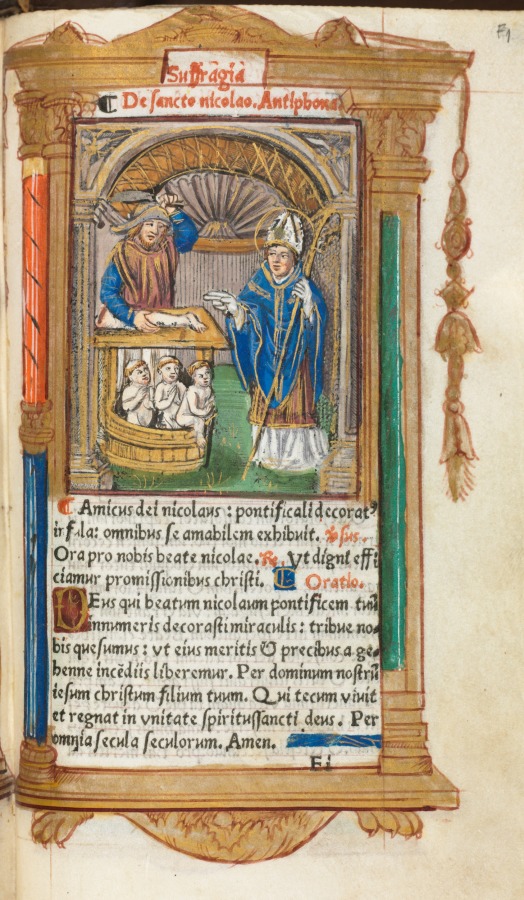 Suffragia
De sancto nicolao. Antiphona
Amicus dei nicolaus : pontificali decorat⁹
ifula: omnibus se amabilem exhibuit. ℣sus.
Ora pro nobis beate nicolae. ℟. Vt digni effi
ciamur promissionibus christi. Oratio.
DEus qui beatum nicolaum pontificem tuū
innumeris decorasti miraculis : tribue no-
bis quesumus : vt eius meritis & precibus a ge-
henne incēdiis liberemur. Per dominum nostrū
iesum christum filium tuum. Qui tecum viuit
et regnat in vnitate spiritussancti deus. Per
omnia secula seculorum. Amen.